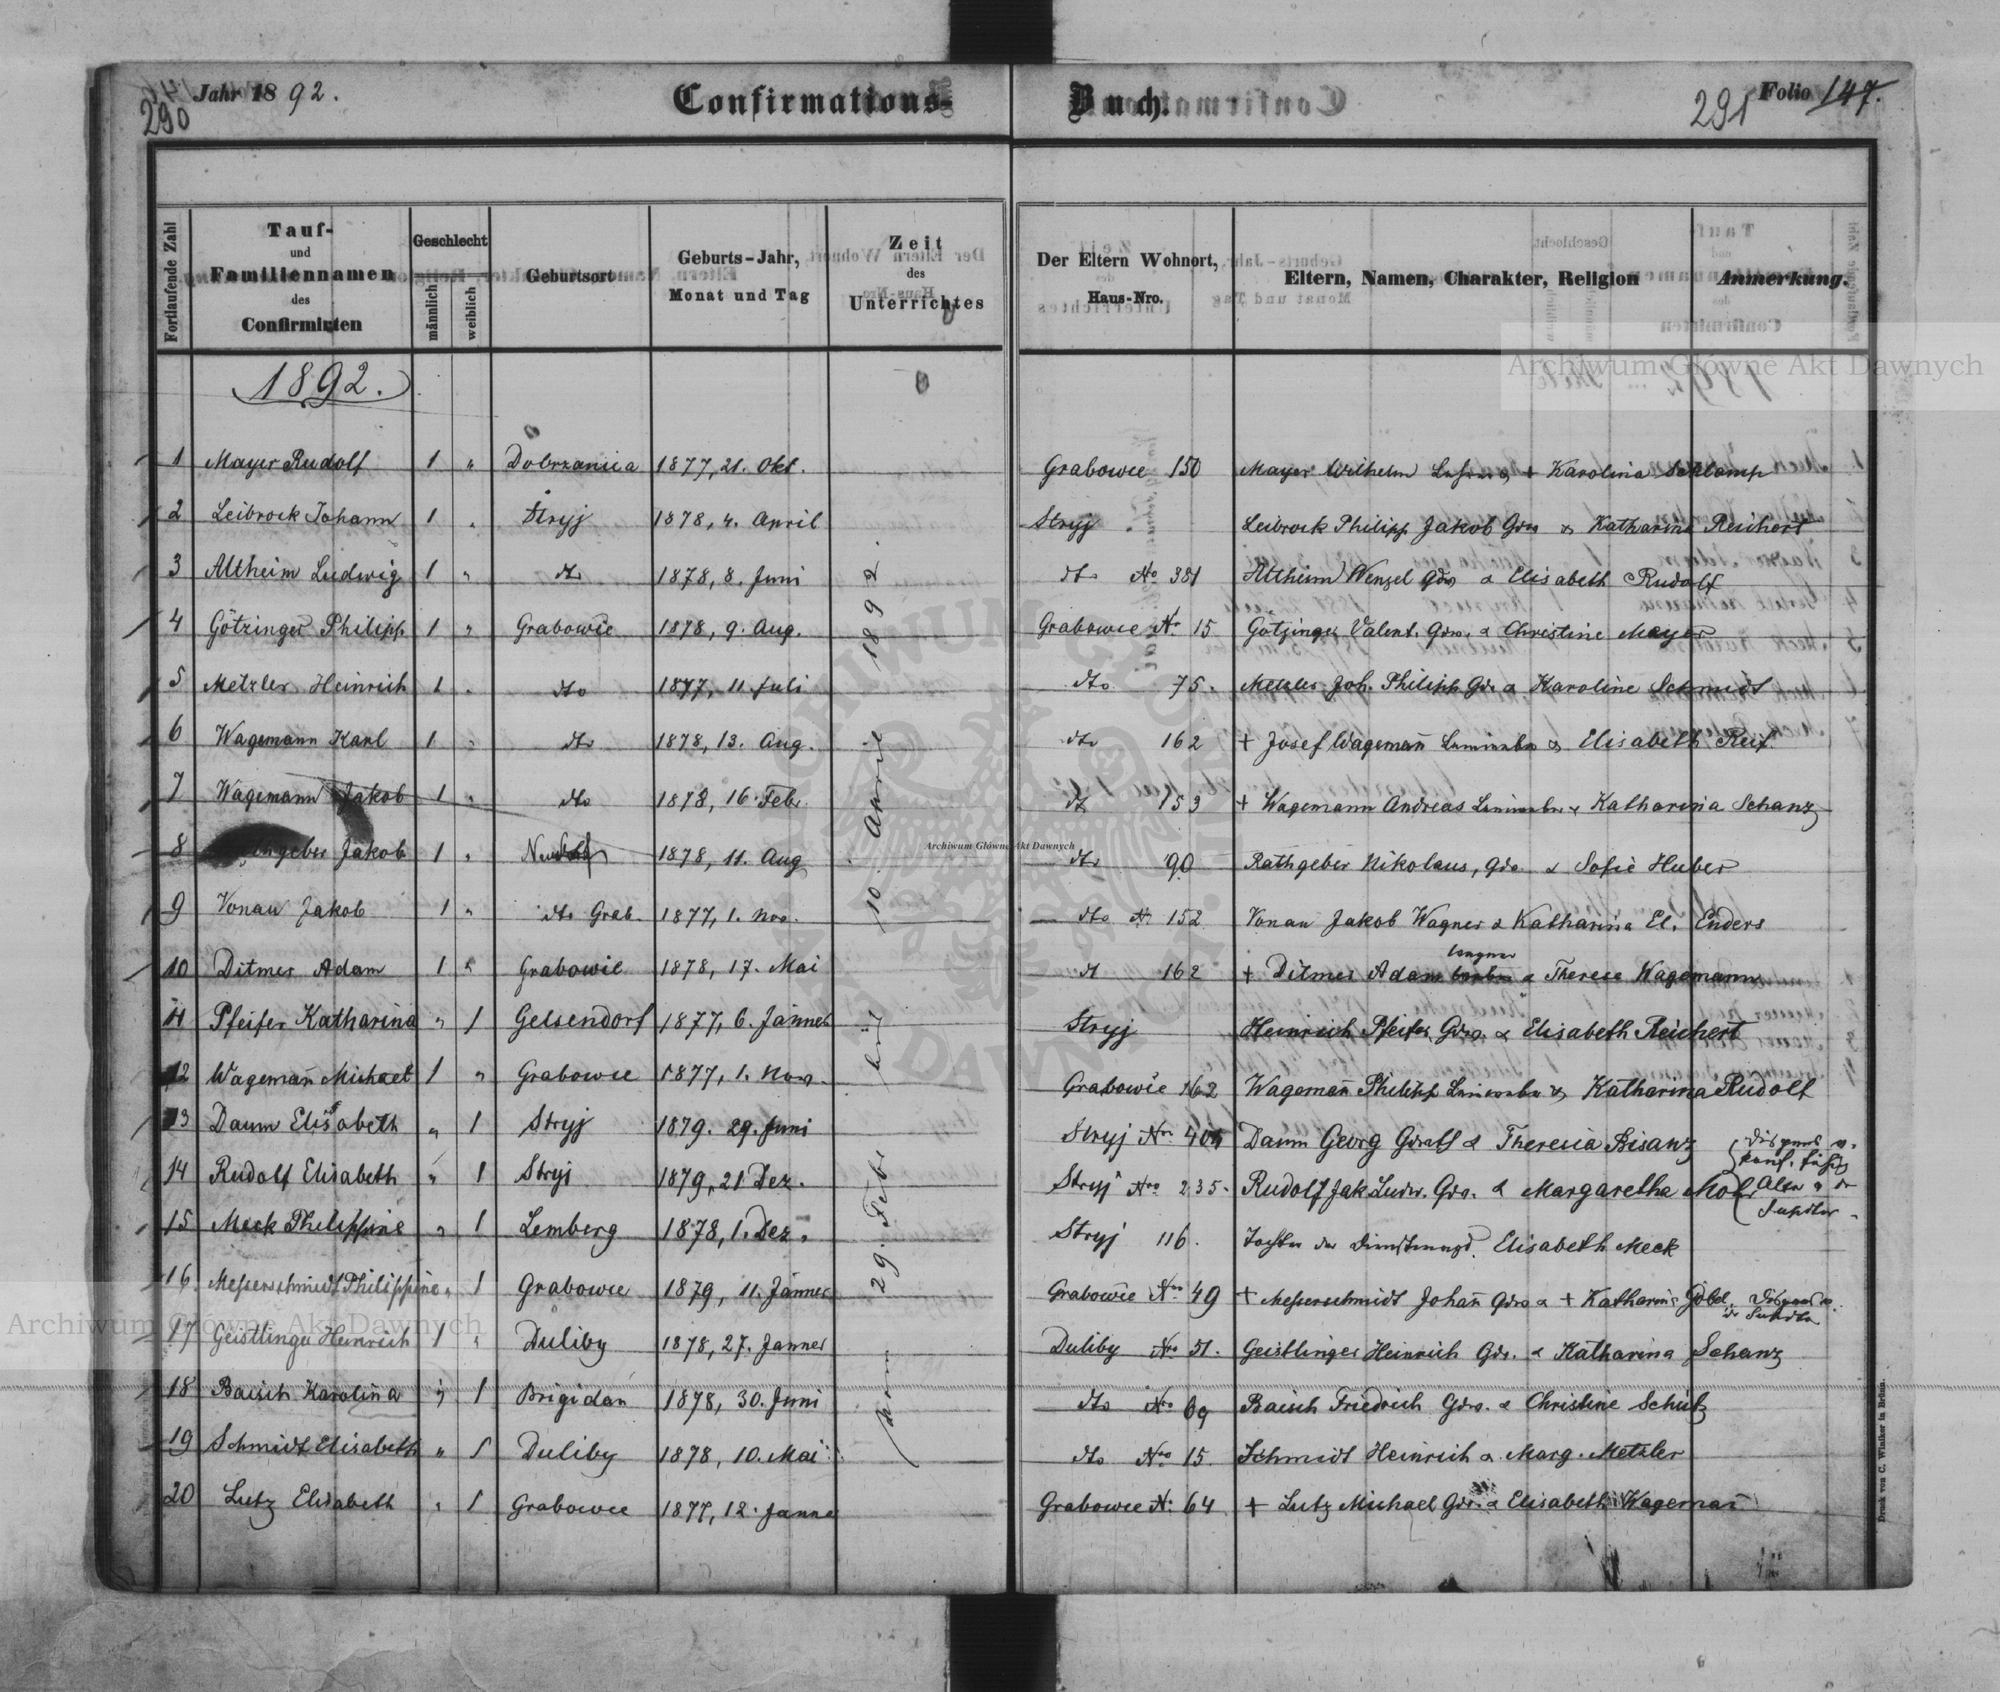 Jahr 1892.
Confirmations-
Buch.
Folio 147.
290
291
Fortlaufende Zahl
Tauf-
und
Familiennamen
des
Confirmirten
Geschlecht
männlich
weiblich
Geburtsort
Geburts-Jahr,
Monat und Tag
Zeit
des
Unterrichtes
Der Eltern Wohnort,
Haus-Nro.
Eltern, Namen, Charakter, Religion
Anmerkung.
1892.
1 Mayer Rudolf 1 " Dobrzanica 1877, 21. Okt. Grabowce 150 Mayer Wilhelm + Karolina Schlamp
2 Leibrock Johann 1 " Stryj 1878, 4. April Stryj Leibrock Philipp Jakob Gdw & Katharina Reichert
3 Altheim Ludwig 1 " dto 1878, 8. Juni dto No 381 Altheim Wenzel Gdw & Elisabeth Rudolf
4 Götzinger Philipp 1 " Grabowce 1878, 9. Aug. Grabowce No 15 Götzinger Valent. Gdw. & Christine Mayer
5 Metzler Heinrich 1 " dto 1877, 11 Juli dto 75. Metzler Joh. Philipp Gdw & Karoline Schmidt
6 Wagemann Karl 1 " dto 1878, 13. Aug. dto 162 + Josef Wagemañ & Elisabeth Reif.
7 Wagemann Jakob 1 " dto 1878, 16. Feb. dto 153 + Wagemann Andreas & Katharina Schanz
8 Jakob 1 " 1878, 11. Aug dto 90 Rathgeber Nikolaus, Gdw. & Sofie Huber
9 Vonau Jakob 1 " dto Grab. 1877, 1. Nov. dto No 152 Vonau Jakob Wagner & Katharina El. Enders
10 Ditmer Adam 1 " Grabowce 1878, 17. Mai dt 162 + Ditmer Adam Wagner & Therese Wagemann
11 Pfeifer Katharina " 1 Gelsendorf 1877, 6. Jänner Stryj Heinrich Pfeifer Gdw. & Elisabeth Reichert
12 Wagemañ Michael 1 " Grabowce 1877, 1. Nov. Grabowce 162 Wagemañ Philipp & Katharina Rudolf
13 Daum Elisabeth " 1 Stryj 1879. 29. Juni Stryj Nro Daum Georg & Theresia Bisanz
14 Rudolf Elisabeth " 1 Stryj 1879, 21 Dez. Stryj Nro 235. Rudolf Jak Ludw. Gdw. & Margaretha
15 Meck Philippine " 1 Lemberg 1878, 1. Dez. Stryj 116. Tochter der Dienstmagd. Elisabeth Meck
16. Messerschmidt Philippine " 1 Grabowce 1879, 11. Jänner Grabowce Nro 49 + Messerschmidt Johañ Gdw & + Katharina Göbel
17 Geistlinger Heinrich 1 " Duliby 1878, 27. Jänner Duliby Nro 51. Geistlinger Heinrich Gdw. & Katharina Schanz
18 Baisch Karolina " 1 Brigidau 1878, 30. Juni dto No 69 Baisch Friedrich Gdw. & Christine Schütz
19 Schmidt Elisabeth " 1 Duliby 1878, 10. Mai dto Nro 15. Schmidt Heinrich & Marg. Metzler
20 Lutz Elisabeth " 1 Grabowce 1877, 12. Janner Grabowce No 64 + Lutz Michael Gdw. & Elisabeth Wagemañ
29. Feb.
10. April 1892.
Druck von C. Winiker in Brünn.
Archiwum Główne Akt Dawnych
Archiwum Główne Akt Dawnych
Archiwum Główne Akt Dawnych
ARCHIWUM GŁÓWNE AKT DAWNYCH